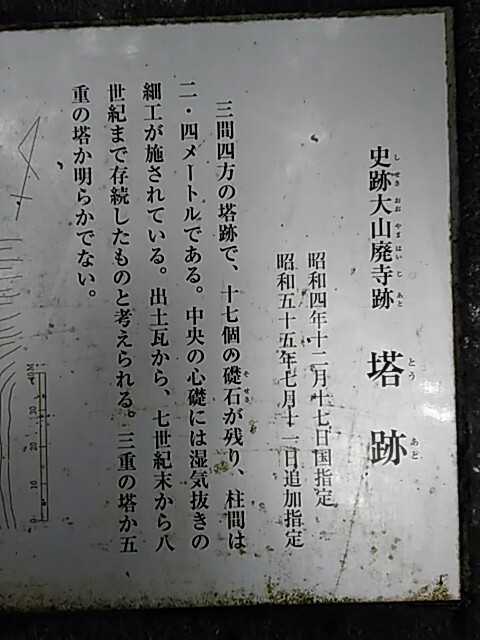 史跡大山廃寺跡 塔跡
しせきおおやまはいじあと とうあと
昭和四年十二月十七日国指定
昭和五十五年七月十一日追加指定
三間四方の塔跡で、十七個の礎石が残り、柱間は
そせき
二・四メートルである。中央の心礎には湿気抜きの
細工が施されている。出土瓦から、七世紀末から八
世紀まで存続したものと考えられる。三重の塔か五
重の塔か明らかでない。
0 10 20 30